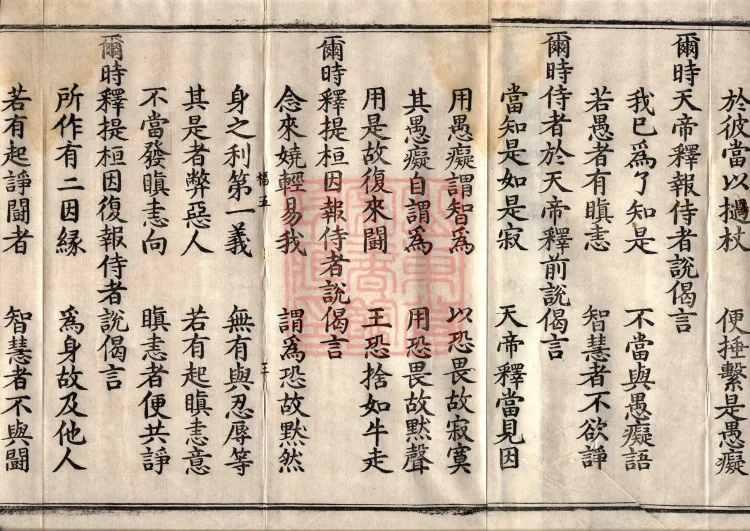 於彼當以撾杖　便捶繫是愚癡
爾時天帝釋報侍者說偈言
我已為了知是　不當與愚癡語
若愚者有瞋恚　智慧者不欲諍
爾時侍者於天帝釋前說偈言
當知是如是寂　天帝釋當見因
用愚癡謂智為　以恐畏故寂寞
其愚癡自謂為　用恐畏故默聲
用是故復來鬪　王恐捨如牛走
爾時釋提桓因報侍者說偈言
念來嬈輕易我　謂為恐故默然
身之利第一義　無有與忍辱等
楊五　三
其是者弊惡人　若有起瞋恚意
不當發瞋恚向　瞋恚者便共諍
爾時釋提桓因復報侍者說偈言
所作有二因緣　為身故及他人
若有起諍鬪者　智慧者不與鬪